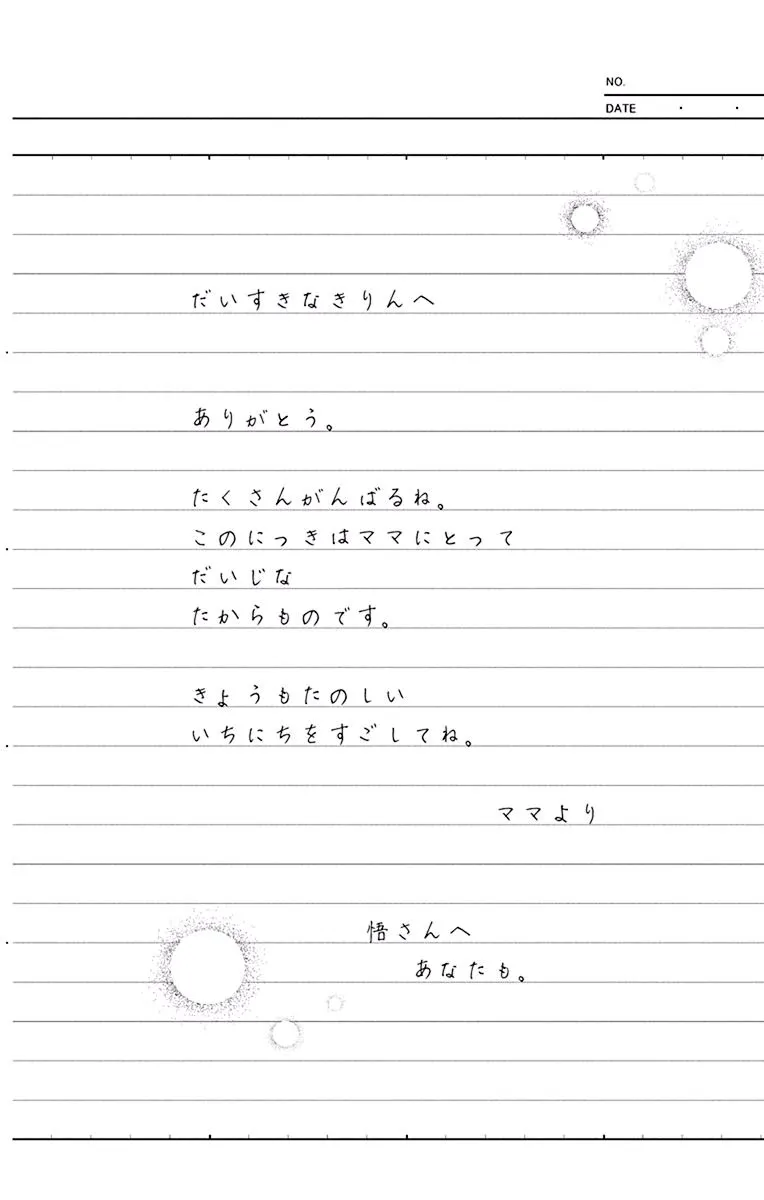 NO.
DATE ・ ・
だいすきなきりんへ
ありがとう。
たくさんがんばるね。
このにっきはママにとって
だいじな
たからものです。
きょうもたのしい
いちにちをすごしてね。
ママより
悟さんへ
あなたも。